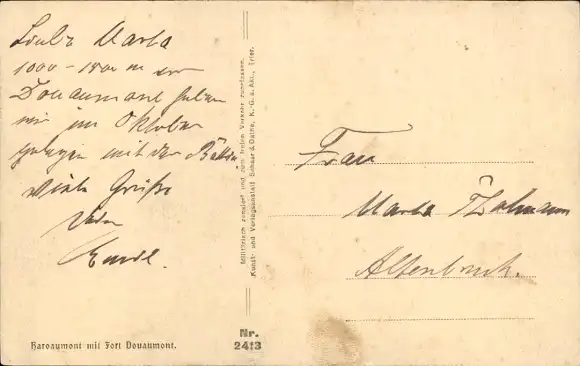 Liebe Marta
1000-1500 m vor
Douaumont haben
wir im Oktober
gelegen mit der
Viele Grüße
Dein
Emil.
Militärisch zensiert und zum freien Verkehr zugelassen.
Kunst- und Verlagsanstalt Schaar & Dathe, K. G. a. Akt., Trier.
Frau
Marta
Altenbruch.
Haroaumont mit Fort Douaumont.
Nr.
2413